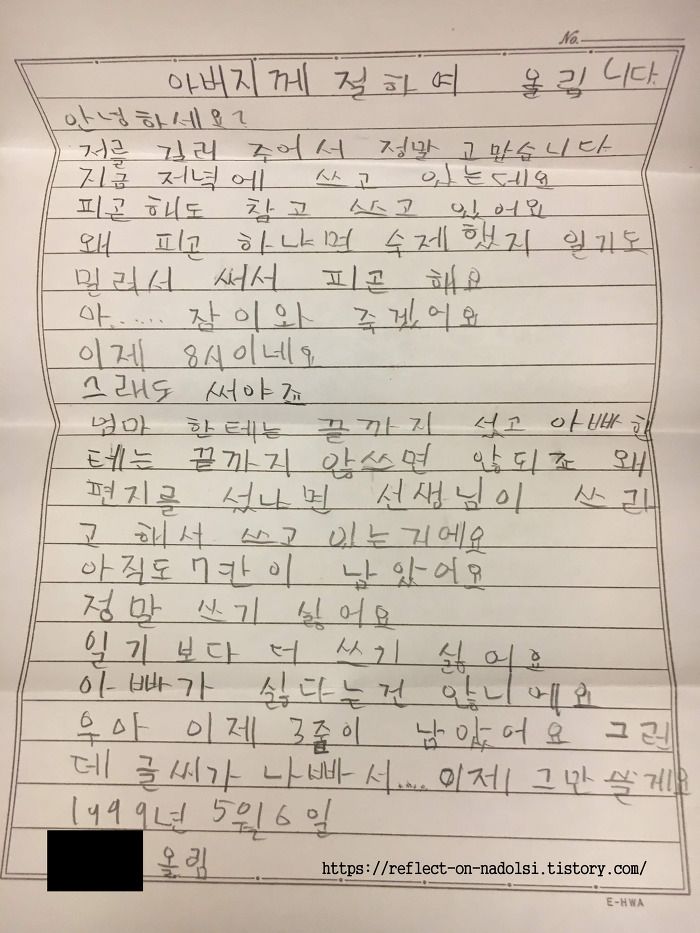 No.
아버지께 절하여 올림니다.
안녕하세요?
저를 길러 주어서 정말 고맙습니다
지금 저녁에 쓰고 있는데요
피곤해도 참고 쓰고 있어요
왜 피곤 하냐면 숙제했지 일기도
밀려서 써서 피곤 해요
아..... 잠이와 죽겠어요
이제 8시이네요
그래도 써야죠
엄마 한테는 끝까지 썼고 아빠한
테는 끝까지 않쓰면 않되죠 왜
편지를 썼냐면 선생님이 쓰라
고 해서 쓰고 있는거에요
아직도 7칸이 남았어요
정말 쓰기 싫어요
일기보다 더 쓰기 싫어요
아빠가 싫다는건 않니에요
우아 이제 3줄이 남았어요 그런
데 글씨가 나빠서.... 이제 그만 쓸게요
1999년 5월 6일
올림
https://reflect-on-nadolsi.tistory.com/
E-HWA